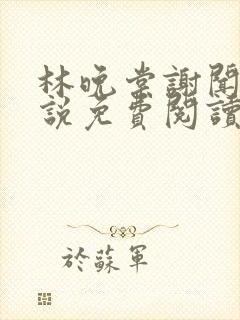 林晚棠謝聞
說免費閱讀
於蘇軍